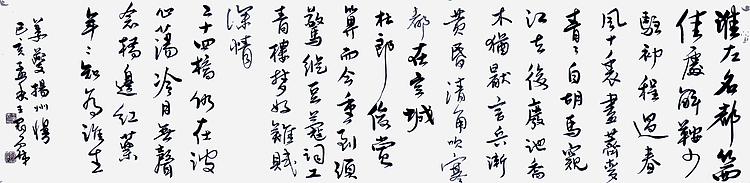 淮左名都竹西
佳處解鞍少
駐初程過春
風十里盡薺麥
青々自胡馬窺
江去後廢池喬
木猶厭言兵漸
黃昏清角吹寒
都在空城
杜郎俊賞
算而今重到須
驚縱豆蔻詞工
青樓夢好難賦
深情
二十四橋仍在波
心蕩冷月無聲
念橋邊紅藥
年々知為誰生
姜夔揚州慢
己亥孟秋